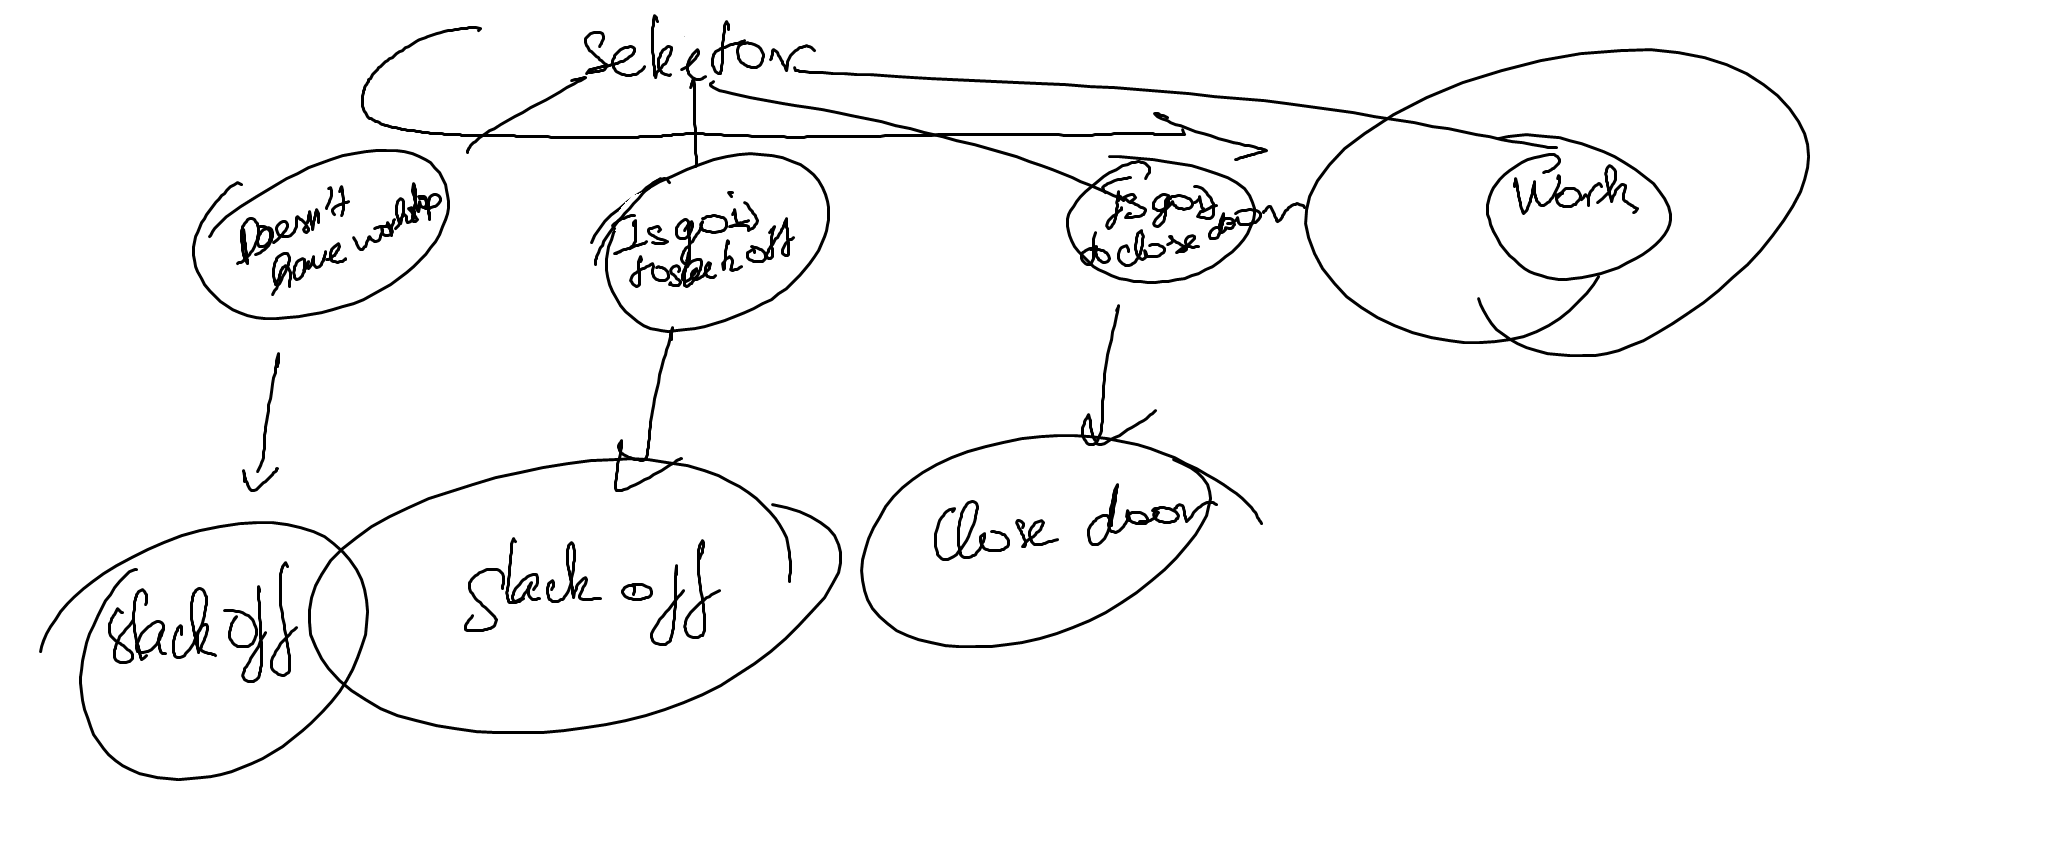 Selector
Doesn't
have workshop
Is goig
to slack off
Is goig
to close door
Work
slack off
slack off
Close door